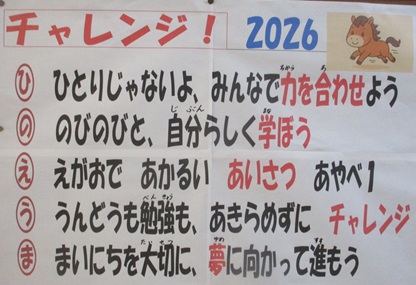 チャレンジ！ 2026
ひ ひとりじゃないよ、みんなで力を合わせよう
の のびのびと、自分らしく学ぼう
え えがおで あかるい あいさつ あやべ1
う うんどうも勉強も、あきらめずに チャレンジ
ま まいにちを大切に、夢に向かって進もう